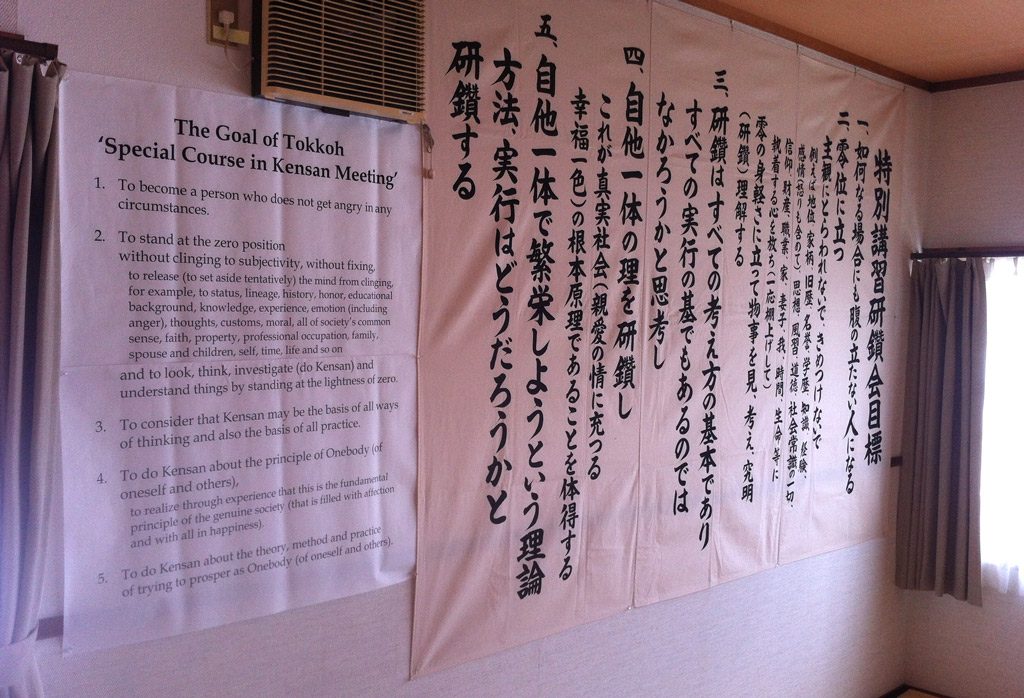 The Goal of Tokkoh
‘Special Course in Kensan Meeting’
1. To become a person who does not get angry in any
circumstances.
2. To stand at the zero position
without clinging to subjectivity, without fixing,
to release (to set aside tentatively) the mind from clinging,
for example, to status, lineage, history, honor, educational
background, knowledge, experience, emotion (including
anger), thoughts, customs, moral, all of society's common
sense, faith, property, professional occupation, family,
spouse and children, self, time, life and so on
and to look, think, investigate (do Kensan) and
understand things by standing at the lightness of zero.
3. To consider that Kensan may be the basis of all ways
of thinking and also the basis of all practice.
4. To do Kensan about the principle of Onebody (of
oneself and others),
to realize through experience that this is the fundamental
principle of the genuine society (that is filled with affection
and with all in happiness).
5. To do Kensan about the theory, method and practice
of trying to prosper as Onebody (of oneself and others).
特別講習研鑽会目標
一、如何なる場合にも腹の立たない人になる
二、零位に立つ
主観にとらわれないで、きめつけないで
例えば地位、家柄、旧歴、名誉、学歴、知識、経験、
感情（怒りも含めて）思想、風習、道徳、社会常識の一切、
信仰、財産、職業、家、妻子、我、時間、生命、等に
執着する心を放ち（一応棚上げして）
零の身軽さに立って物事を見、考え、究明
（研鑽）理解する
三、研鑽はすべての考え方の基本であり
すべての実行の基でもあるのでは
なかろうかと思考し
四、自他一体の理を研鑽し
これが真実社会（親愛の情に充つる
幸福一色）の根本原理であることを体得する
五、自他一体で繁栄しようという理論
方法、実行はどうだろうかと
研鑽する